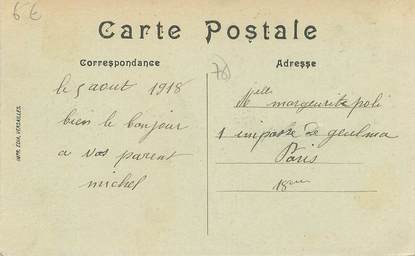 6€
Carte Postale
Correspondance
Adresse
78
le 5 aout 1918
bien le bonjour
a vos parent
michel
Melle margeurite poli
1 impasse de geulma
Paris
18me
IMP. EDIA, VERSAILLES